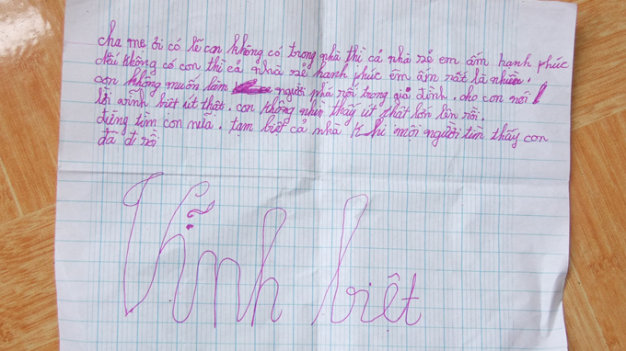 cha mẹ ơi có lẽ con không có trong nhà thì cả nhà sẻ em ấm hạnh phúc
nếu không có con thì cả nhà sẻ hạnh phúc êm ấm rất là nhiều.
con không muốn làm người phá rối trong gia đình. cho con nói 1
lời vĩnh biệt út thật. con không nhìn thấy út thật lớn lên rồi.
đừng tìm con nữa. tạm biệt cả nhà khi mọi người tìm thấy con
đã đi rồi
Vĩnh biệt